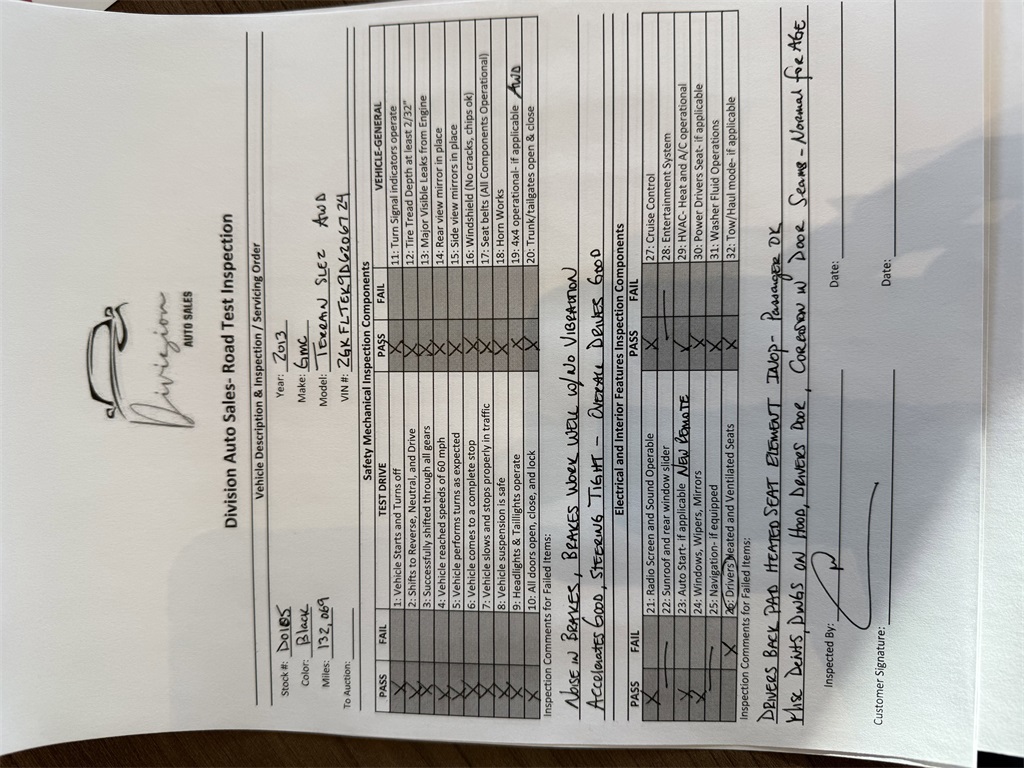 Division
AUTO SALES
Division Auto Sales- Road Test Inspection
Vehicle Description & Inspection / Servicing Order
Stock #: D0185 Year: 2013
Color: Black Make: GMC
Miles: 132,069 Model: TERRAIN SLE2 AWD
To Auction: VIN #: 2GKFLTEK9D6206724
Safety Mechanical Inspection Components
PASS FAIL TEST DRIVE PASS FAIL VEHICLE-GENERAL
X 1: Vehicle Starts and Turns off X 11: Turn Signal indicators operate
X 2: Shifts to Reverse, Neutral, and Drive X 12: Tire Tread Depth at least 2/32"
X 3: Successfully shifted through all gears X 13: Major Visible Leaks from Engine
X 4: Vehicle reached speeds of 60 mph X 14: Rear view mirror in place
X 5: Vehicle performs turns as expected X 15: Side view mirrors in place
X 6: Vehicle comes to a complete stop X 16: Windshield (No cracks, chips ok)
X 7: Vehicle slows and stops properly in traffic X 17: Seat belts (All Components Operational)
X 8: Vehicle suspension is safe X 18: Horn Works
X 9: Headlights & Taillights operate X 19: 4x4 operational- if applicable AWD
X 10: All doors open, close, and lock X 20: Trunk/tailgates open & close
Inspection Comments for Failed Items:
NOISE IN BRAKES, BRAKES WORK WELL W/NO VIBRATION
ACCELERATES GOOD, STEERING TIGHT - OVERALL DRIVES GOOD
Electrical and Interior Features Inspection Components
PASS FAIL PASS FAIL
X 21: Radio Screen and Sound Operable X 27: Cruise Control
— 22: Sunroof and rear window slider — 28: Entertainment System
X 23: Auto Start- if applicable NEW REMOTE X 29: HVAC- Heat and A/C operational
X 24: Windows, Wipers, Mirrors X 30: Power Drivers Seat- if applicable
— 25: Navigation- if equipped X 31: Washer Fluid Operations
X 26: Drivers Heated and Ventilated Seats X 32: Tow/Haul mode- if applicable
Inspection Comments for Failed Items:
DRIVERS BACK PAD HEATED SEAT ELEMENT INOP- Passenger OK
Misc DENTS, DINGS ON HOOD, DRIVERS DOOR, CORROSION IN DOOR SEAMS - NORMAL FOR AGE
Inspected By: Date:
Customer Signature: Date: